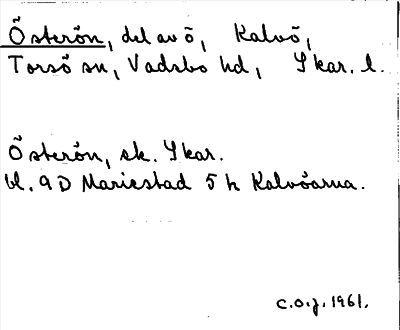 Österön, del av ö, Kalvö,
Torsö sn, Vadsbo hd, Skar. l.
Österön, sk. Skar.
bl. 9D Mariestad 5 h Kalvöarna.
C.O.J. 1961.